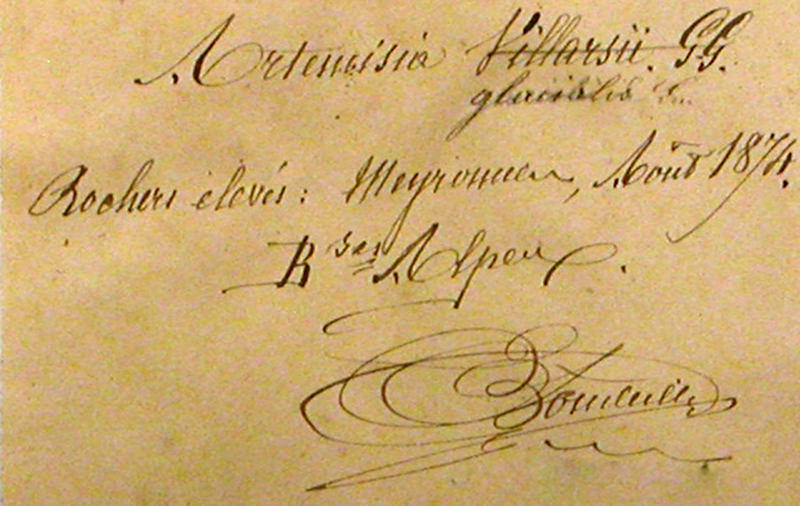 Artemisia Villarsii. GG.
glacialis L.
Rochers élevés: Meyronnen, Août 1874.
Bses Alpes.